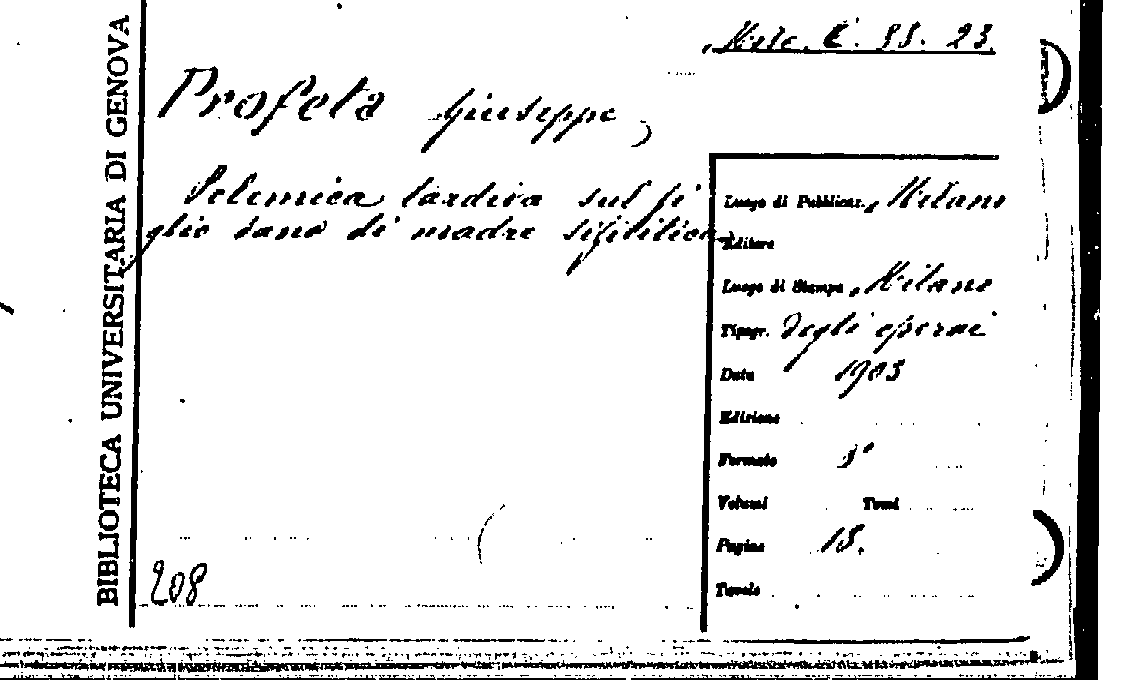 BIBLIOTECA UNIVERSITARIA DI GENOVA
Misc. C. 55. 23.
Profeta Giuseppe,
Polemica tardiva sul fi
glio sano di madre sifilitica
Luogo di Pubblicaz. Milano
Editore
Luogo di Stampa Milano
Tipogr. degli operai
Data 1903
Edizione
Formato 8°
Volumi Tomi
Pagine 15.
Tavole
208